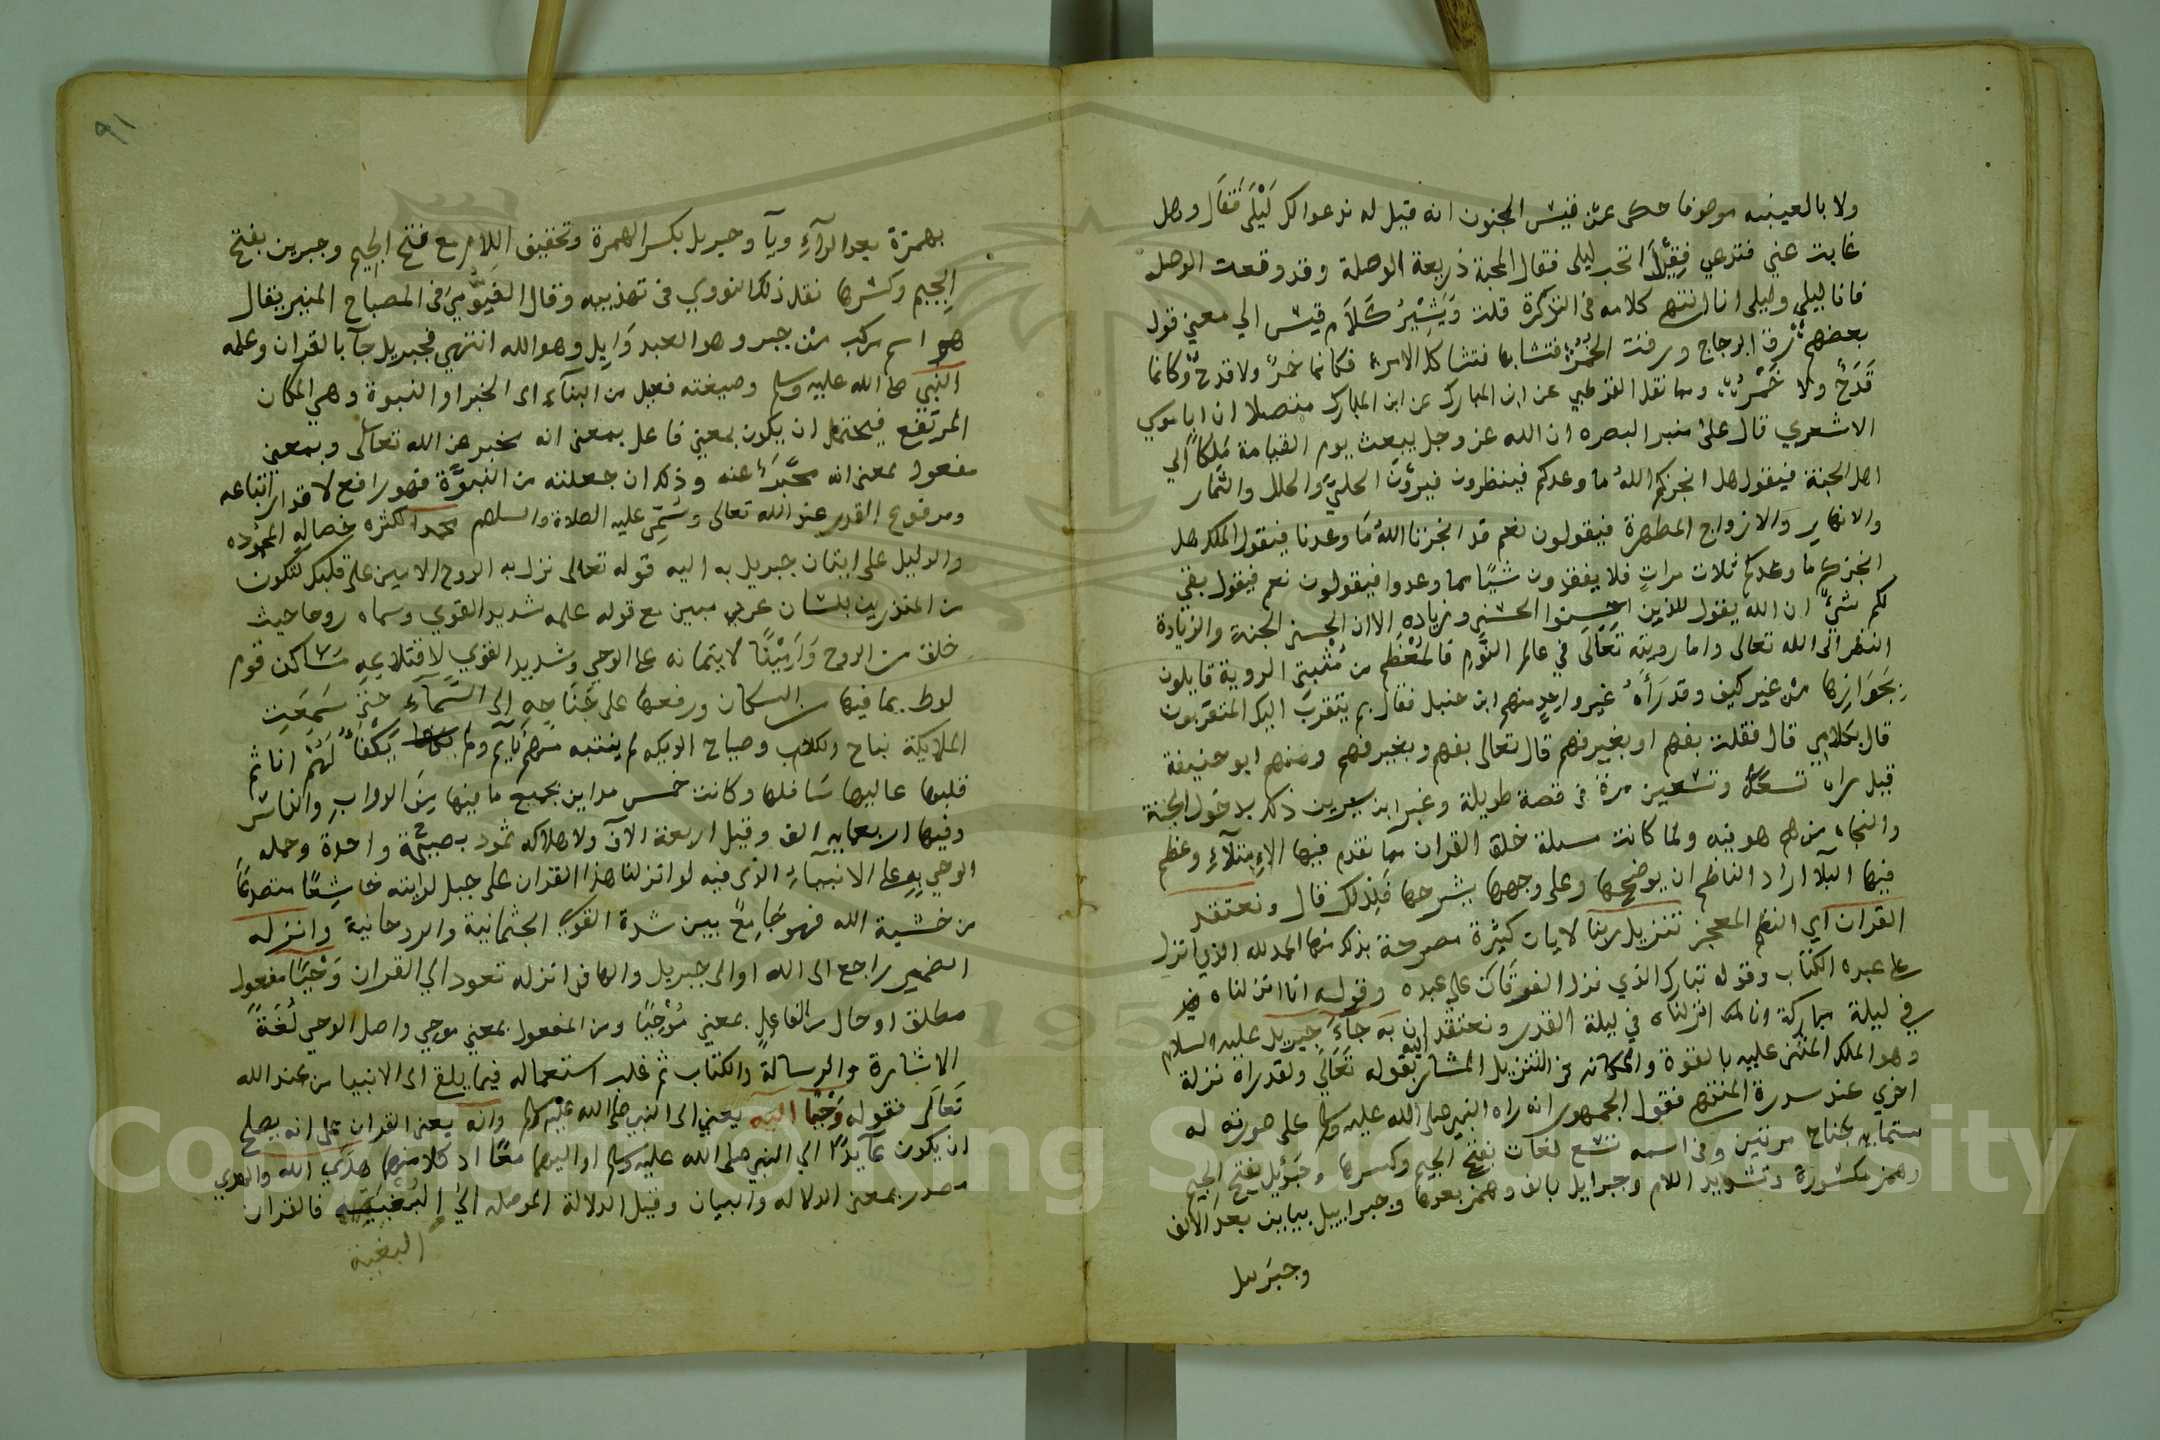 ولا بالعينيه موصوفا حكى عن قيس المجنون انه قيل له ندعوا لك لَيْلَى فقَال وهل
غابت عني فتدعي فقِيْلَ اتحب ليلى فقال المحبة ذريعة الوصلة وقد وقعت الوصله
فانا ليلى وليلى انا انتهى كلامه في التذكرة قلت وَيُشِيْرُ كَلَام قيس الي معني قول
بعضهم رق الزجاج ورقت الخَمْرُ فتشابها فتشاكل الامر فكانما خمرٌ ولا قدحٌ وكانما
قَدَحٌ ولا خَمْرُ ومما نقل القرطبي عن ابن المبارك عن ابن المبارك متصلا ان ابا موسي
الاشعري قال على منبر البصره ان الله عز وجل يبعث يوم القيامة مَلكاً الي
اهل الجنة فيقول هل انجزكم اللهُ ما وعدكم فينظرون فيرَوْن الحليَّ والحلل والثمار
والانهار والازواج المطهرة فيقولون نعم قد انجزنا اللهُ مَا وعدنا فيقول الملك هل
انجزكم ما وعدكم ثلاث مراتٍ فلا يفقدون شيًا مما وعدوا فيقولون نعم فيقول بقي
لكم شيءٌ ان الله يقول للذين احسنوا الحسنى وزياده الا ان الحسنى الجنة والزيادة
النظر الى الله تعالى واما رويته تَعَالَى في عالم النَّوم فالمُعْظَم من مُثْبِتي الروية قايلون
بجَوَازِهَا من غير كيف وقد رَأَهُ غير واحدٍ منهم ابن حنبل فقال بم يتقرب اليك المتقربون
قال بكلامي قال فقلت بفهم او بغير فهم قال تعالى بفهم وبغير فهم ومنهم ابو حنيفة
قيل راه تسعًا وتسعين مرة في قصة طويلة وعبر ابن سيرين ذلك بدخول الجنة
والنجاه من هم هو فيه ولما كانت مسلة خلق القران مما تقدم فيها الاِبْتِلآءِ وعظم
فيها البلآ اراد الناظم ان يوضحها وعلى وجهها يشرحها فَلِذلك قال ونعتقد
القران اي النظم المعجز تنزيل ربنا لايات كثيرة مصرحة بذلك منها الحمد لله الذي انزل
على عبده الكتاب وقوله تبارك الذي نزل الفرقَان على عبده وقوله انا انزلناه
في ليلة مباركة انا انزلناه في ليلة القدر ونعتقد ان به جاءَ جبريل عليه السلام
وهو الملك المُثنى عليه بالقوة والمكانه في التنزيل المشار اليه بقوله تَعَالَى ولقد راه نزلة
اخري عند سدرة المنتهى فقول الجمهور انه راه النبي صلى الله عليه وسلم على صورته له
ستمايه جناح مرتين وفي اسمه تسع لغات بفتح الجيم وكسرها وجَبْرَئِل بفتح الجيم
وهمز مكسورة وتشديد اللام وجبرايل بالف وهمز بعدها وجبراييل بيايين بعد الالف
وجبريل
٩١
بهمزة بعد الرآءِ ويآ وجبريل بكسر الهمزة وتخفيف اللام مع فتح الجيم وجبرين بفتح
الجيم وكسرها نقل ذلك النووي في تهذيبه وقال الفَيُّوْمِيّ في المصباح المنير يقال
هو اسم مركب من جبر وهو العبد وَايِل وهو الله انتهي فجبريل جآ بالقران وعلمه
النبي صلى الله عليه وسلم وصيغته فعيل من النبآءِ اى الخبر او النبوة وهي المكان
المرتفع فيحتمل ان يكون بمعني فاعل بمعنى انه مخبر عن الله تعالى وبمعنى
مفعول بمعنى انه مخْبَرٌ عنه وذلك ان جعلته من النبوَّة فهو رافع لاقدار اتباعه
ومرفوع القدر عند الله تعالى وسُمّي عليه الصلاة والسلام محمدا لكثره خصاله المحموده
والدليل على اتيان جبريل به اليه قوله تعالى نزل به الروح الامين على قلبك لتكون
من المنذرين بلسان عربي مبين مع قوله علمه شديد القوي وسماه روحا حيث
خلق من الروح وَاَمِيْنًا لايتمانه على الوحي وشديد القوي لاِقتلاعِهِ مَسَاكن قوم
لوط بما فيها من السكان ورفعها على جَنَاحِهِ الى السَّمآءِ حتى سَمِعَتِ
الملايكة نباح الكلاب وصياح الديكه لم ينتبه منهم نايم ولم يُكْفَأ لَهُمْ انا ثم
قلبها عاليها سَافلها وكانت خمس مداين بجميع ما فيها مِنَ الدوابِ والناس
وفيها اربعمايه الف وقيل اربعة الآف ولاهلاكه ثمود بصيحَةٍ واحدة وحمله
الوحي به على الانبيآءِ الذى فيه لو انزلنا هذا القران على جبل لرايته خاشِعًا متصدعًا
من خشية الله فهو جَامِعٌ بين شدة القوي الجثمانية والروحانية وانزله
الضمير راجع الى الله او الى جبريل والها في انزله تعود الي القران وَحْيًا مفعول
مطلق او حال من الفاعل بمعني مُوْحِيًا ومن المفعول بمعني موحي واصل الوحي لُغَةً
الاشارة والرسالة والكتاب ثم غلب استعماله فيما يلقى الى الانبيا من عند الله
تَعَالَى فقوله وَحْيًا اليه يعني الى النبي صلى الله عليه وسلم وانه يعنى القران على انه يصلح
ان يكون عآيدًا الي النبي صلى الله عليه وسلم او اليهما معًا اذ كلا منهما هدَي الله والهدي
مصدر بمعنى الدلاله والبيان وقيل الدلالة الموصله الي البُغْيَة فالقران
البغية
Copyright © King Saud University
1957